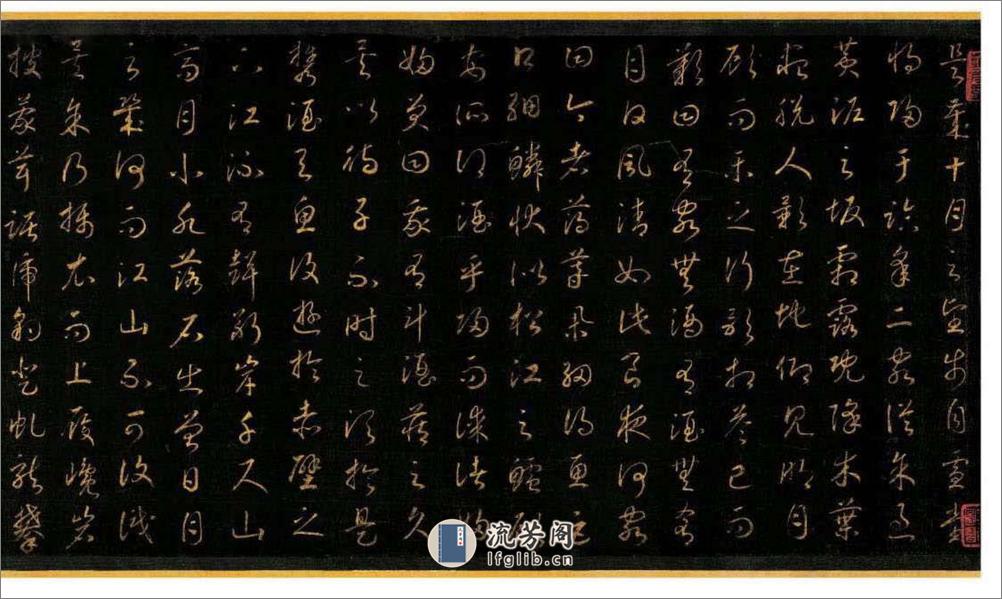 是歲十月之望步自雪堂
將歸于臨皋二客從余過
黃泥之坂霜露既降木葉
盡脫人影在地仰見明月
顧而樂之行歌相答已而
歎曰有客無酒有酒無肴
月白風清如此良夜何客
曰今者薄暮舉網得魚巨
口細鱗狀似松江之鱸顧
安所得酒乎歸而謀諸婦
婦曰我有斗酒藏之久
矣以待子不時之須於是
攜酒與魚復遊於赤壁之
下江流有聲斷岸千尺山
高月小水落石出曾日月
之幾何而江山不可復識
矣余乃攝衣而上履巉岩
披蒙茸踞虎豹登虬龍攀
流芳阁
lfglib.cn